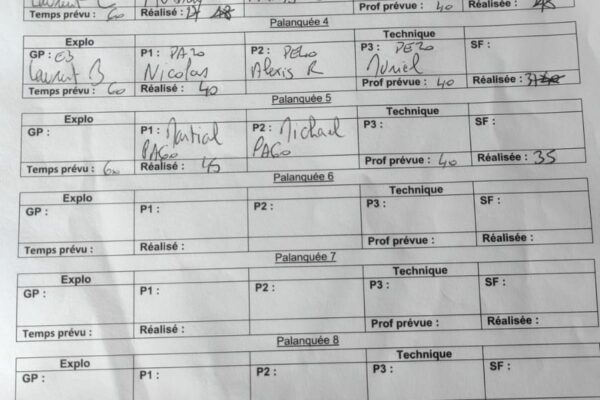 Laurent C
Temps prévu : 60 Réalisé : 48 Prof prévue : 40 Réalisée : 48
Palanquée 4
Explo Technique
GP : E3 P1 : PA20 P2 : PE40 P3 : PE20 SF :
Laurent B Nicolas Alexis R Muriel
Temps prévu : 60 Réalisé : 40 Prof prévue : 40 Réalisée :
Palanquée 5
Explo Technique
GP : P1 : Martial P2 : Michael P3 : SF :
PA60 PA60
Temps prévu : 60 Réalisé : 45 Prof prévue : 40 Réalisée : 35
Palanquée 6
Explo Technique
GP : P1 : P2 : P3 : SF :
Temps prévu : Réalisé : Prof prévue : Réalisée :
Palanquée 7
Explo Technique
GP : P1 : P2 : P3 : SF :
Temps prévu : Réalisé : Prof prévue : Réalisée :
Palanquée 8
Explo Technique
GP : P1 : P2 : P3 : SF :